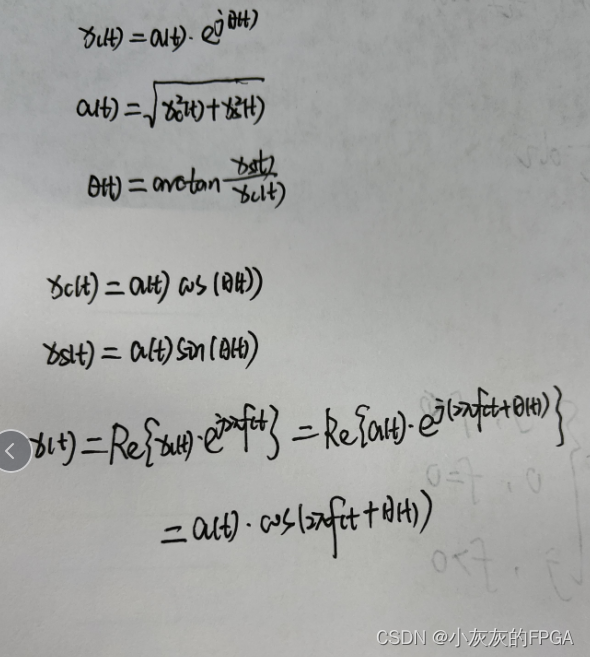 x_l(t) = a(t) · e^{jθ(t)}
a(t) = √(x_c²(t) + x_s²(t))
θ(t) = arctan x_s(t)/x_c(t)
x_c(t) = a(t) cos(θ(t))
x_s(t) = a(t) sin(θ(t))
x(t) = Re{x_l(t) · e^{j2πf_ct}} = Re{a(t) · e^{j(2πf_ct+θ(t))}}
= a(t) · cos(2πf_ct + θ(t))
CSDN @小灰灰的FPGA